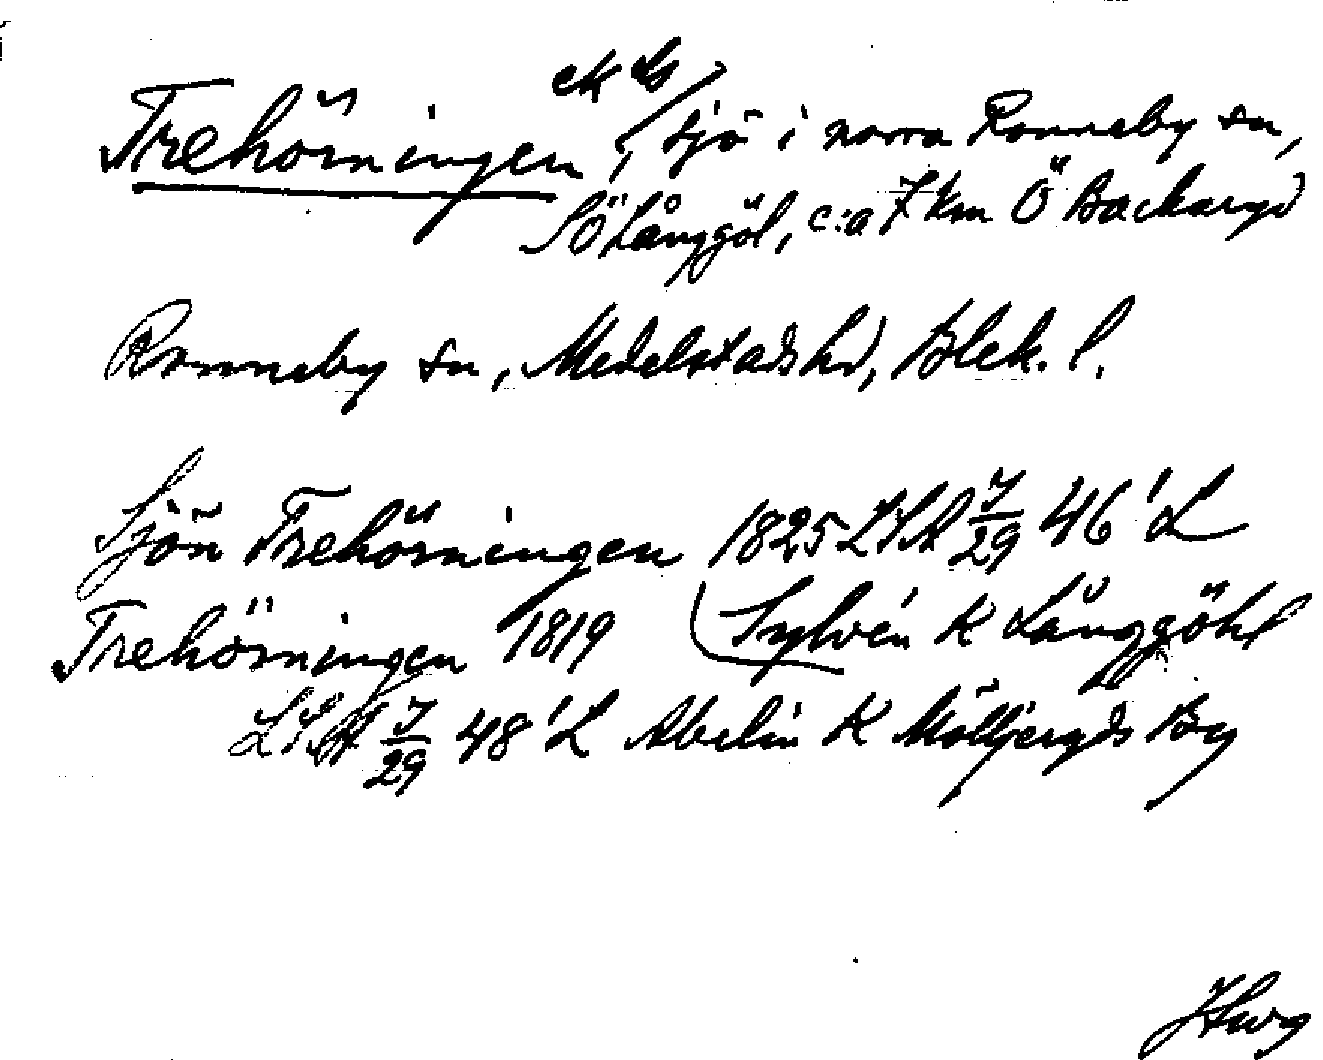 ek ls
Trehörningen, sjö i norra Ronneby sn,
SÖ Långgöl, c:a 7 km Ö Backaryd
Ronneby sn, Medelstads hd, Blek. l.
Sjön Trehörningen 1825 LSA 7/29 46 'L
Trehörningen 1819 Sylvén K Långgöhl
LSA 7/29 48 'L Abelin K Mölljeryds By